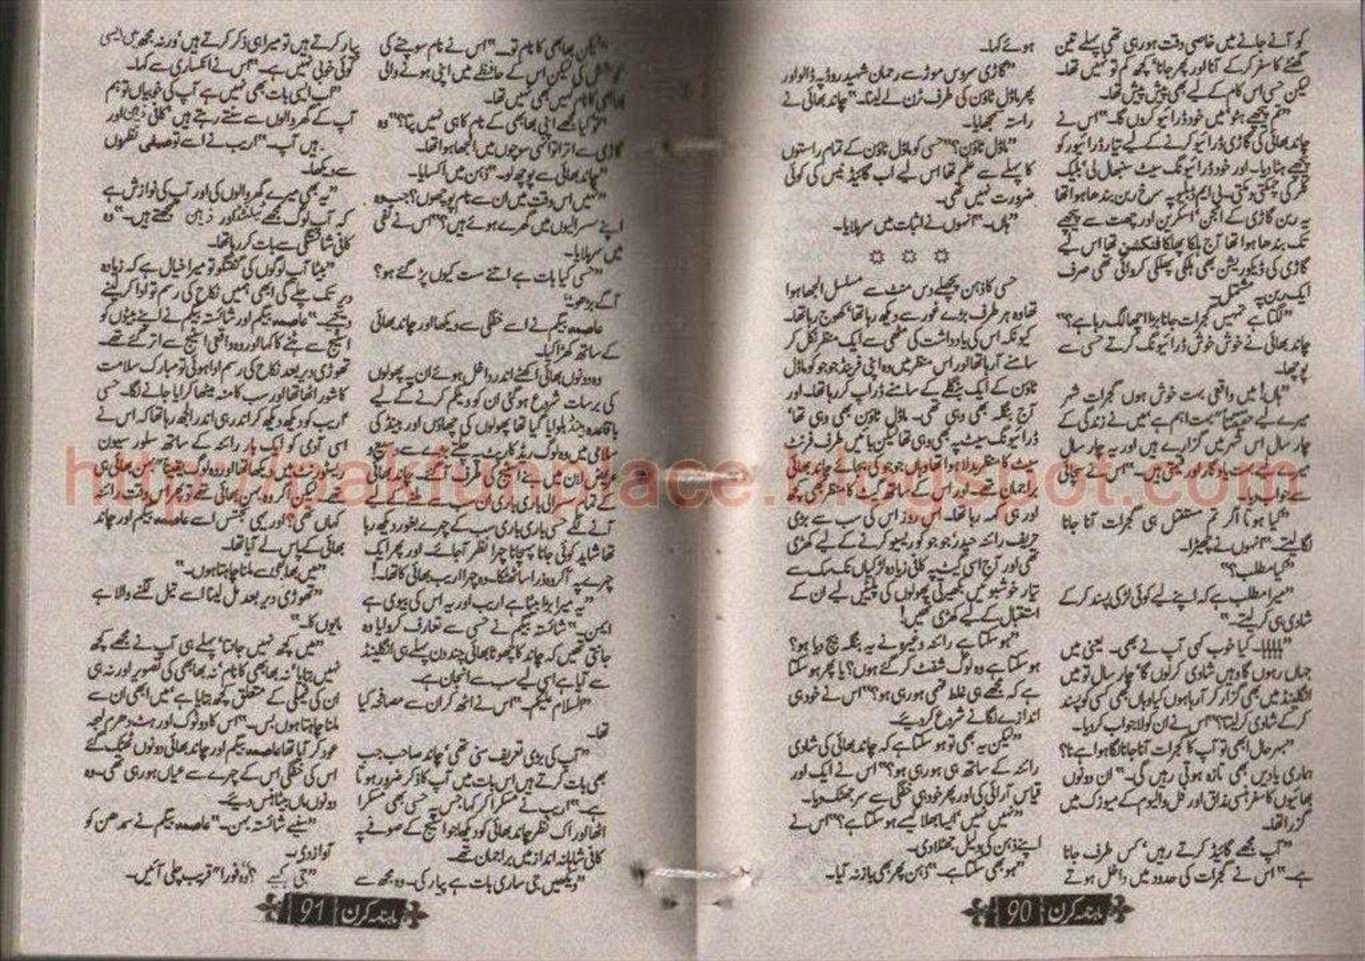 کو آنے جانے میں خاصی دقت ہو رہی تھی پہلے تین
گھنٹے کا سفر کر کے آنا اور پھر جانا، کچھ کم تو نہیں تھا۔
لیکن حسی اس کام کے لیے بھی پیش پیش تھا۔
"تم پیچھے ہٹو میں خود ڈرائیو کروں گا۔" اس نے
چاند بھائی کی گاڑی ڈرائیو کرنے کے لیے تیار ڈرائیور کو
پیچھے ہٹا دیا۔ اور خود ڈرائیونگ سیٹ سنبھال لی، بلیک
کلر کی چمکتی دمکتی۔ بی ایم ڈبلیو پہ سرخ ربن بندھا ہوا تھا
یہ ربن گاڑی کے انجن، اسکرین اور چھت سے پیچھے
تک بندھا ہوا تھا آج ہلکا پھلکا فنکشن تھا اس لیے
گاڑی کی ڈیکوریشن بھی ہلکی پھلکی کروائی تھی صرف
ایک ربن پہ مشتمل۔
"لگتا ہے تمہیں گجرات جانا بڑا اچھا لگ رہا ہے؟"
چاند بھائی نے خوش خوش ڈرائیونگ کرتے حسی سے
پوچھا۔
"ہاں! میں واقعی بہت خوش ہوں گجرات شہر
میرے لیے بہت اہم ہے میں نے زندگی کے
چار سال اس شہر میں گزارے ہیں اور یہ چار سال
میرے لیے بہت یادگار اور قیمتی ہیں۔" اس نے سچائی
سے جواب دیا۔
"کیا ہوتا اگر تم مستقل ہی گجرات آنا جانا
لگا لیتے۔" انہوں نے چھیڑا۔
"کیا مطلب؟"
"میرا مطلب ہے کہ اپنے لیے کوئی لڑکی پسند کر کے
شادی ہی کر لیتے۔"
"ہاہاہا۔ کیا خوب کہی آپ نے بھی۔ یعنی میں
جہاں رہوں گا وہیں شادی کر لوں گا، چار سال تو میں
انگلینڈ میں بھی گزار کر آ رہا ہوں کیا وہاں بھی کسی کو پسند
کر کے شادی کر لیتا؟" اس نے ان کو لاجواب کر دیا۔
"بہرحال ابھی تو آپ کا گجرات آنا جانا لگا ہوا ہے نا؟
ہماری یادیں بھی تازہ ہوتی رہیں گی۔" ان دونوں
بھائیوں کا سفر ہنسی مذاق اور فل والیوم کے میوزک میں
گزرا تھا۔
"آپ مجھے گائیڈ کرتے رہیں، کس طرف جانا
ہے۔" اس نے گجرات کی حدود میں داخل ہوتے
ہوئے کہا۔
"گاڑی سروس موڑ سے رحمان شہید روڈ پہ ڈالو اور
پھر ماڈل ٹاؤن کی طرف ٹرن لے لینا۔" چاند بھائی نے
راستہ سمجھایا۔
"ماڈل ٹاؤن؟" حسی کو ماڈل ٹاؤن کے تمام راستوں
کا پہلے سے علم تھا اس لیے اب گائیڈ لینس کی کوئی
ضرورت نہیں تھی۔
"ہاں۔" انہوں نے اثبات میں سر ہلایا۔
☆ ☆ ☆
حسی کا ذہن پچھلے دس منٹ سے مسلسل الجھا ہوا
تھا وہ ہر طرف بڑے غور سے دیکھ رہا تھا، کھوج رہا تھا۔
کیونکہ اس کی یادداشت کی مٹھی سے ایک منظر نکل کر
سامنے آ رہا تھا اور اس منظر میں وہ اپنی فرینڈ جوجو کو ماڈل
ٹاؤن کے ایک بنگلے کے سامنے ڈراپ کر رہا تھا۔ اور
آج بنگلہ بھی وہی تھی۔ ماڈل ٹاؤن بھی وہی تھا،
ڈرائیونگ سیٹ پہ بھی وہی تھا لیکن بائیں طرف فرنٹ
سیٹ کا منظر بدلا ہوا تھا وہاں جوجو کی بجائے چاند بھائی
براجمان تھے۔ اور اس کے ساتھ گیٹ کا منظر بھی کچھ
اور ہی کہہ رہا تھا۔ اس روز اس کی سب سے بڑی
حریف رائنہ حیدر، جوجو کو ریسیو کرنے کے لیے کھڑی
تھی اور آج اسی گیٹ پہ کافی زیادہ لڑکیاں تک سک سے
تیار خوشبوئیں بکھیرتی پھولوں کی پلیٹیں لیے ان کے
استقبال کے لیے کھڑی تھیں!
"ہو سکتا ہے رائنہ وغیرہ نے یہ بنگلہ بیچ دیا ہو؟
ہو سکتا ہے وہ لوگ شفٹ کر گئے ہوں؟ یا پھر ہو سکتا
ہے کہ مجھے ہی غلط فہمی ہو رہی ہو؟" اس نے خود ہی
اندازے لگانے شروع کر دیے۔
"لیکن یہ بھی تو ہو سکتا ہے کہ چاند بھائی کی شادی
رائنہ کے ساتھ ہی ہو رہی ہو؟" اس نے ایک اور
قیاس آرائی کی اور پھر خود ہی خفگی سے سر جھٹک دیا۔
"نہیں نہیں، ایسا بھلا کیسے ہو سکتا ہے؟" اس نے
اپنے ذہن کی دلیل جھٹلا دی۔
"ہو بھی سکتا ہے۔" ذہن پھر بھی باز نہ آیا۔
ماہنامہ کرن 90
"لیکن بھابھی کا نام تو۔" اس نے نام سوچنے کی
کوشش کی لیکن اس کے حافظے میں اپنی ہونے والی
بھابھی کا نام کہیں بھی نہیں تھا۔
"تو کیا مجھے اپنی بھابھی کے نام کا ہی نہیں پتا؟" وہ
گاڑی سے اترا تو انہی سوچوں میں الجھا ہوا تھا۔
"چاند بھائی سے پوچھ لو۔" ذہن میں اکسایا۔
"میں اس وقت میں ان سے نام پوچھوں؟ جب وہ
اپنے سسرالیوں میں گھرے ہوئے ہیں؟" اس نے نفی
میں سر ہلایا۔
"حسی کیا بات ہے اتنے سست کیوں پڑ گئے ہو؟
آگے بڑھو۔"
عاصمہ بیگم نے اسے خفگی سے دیکھا اور چاند بھائی
کے ساتھ کھڑا کیا۔
وہ دونوں بھائی اکٹھے اندر داخل ہوئے ان پہ پھولوں
کی برسات شروع ہو گئی ان کو ویلکم کرنے کے لیے
باقاعدہ بینڈ بلوایا گیا تھا پھولوں کی چھاؤں اور بینڈ کی
سلامی میں وہ لوگ ریڈ کارپٹ پہ چلتے ہوئے وسیع و
عریض لان میں بنے اسٹیج کی طرف آ گئے۔ چاند بھائی
کے تمام سسرالی باری باری ان سب سے ملنے کے لیے
آنے لگے حسی باری باری سب کے چہرے بغور دیکھ رہا
تھا شاید کوئی جانا پہچانا چہرا نظر آ جائے۔ اور پھر ایک
چہرے پہ آ کر وہ ذرا سا ٹھٹکا۔ وہ چہرا اریب بھائی کا تھا۔!
"یہ میرا بڑا بیٹا ہے اریب اور یہ اس کی بیوی ہے
ایمن۔" شائستہ بیگم نے حسی سے تعارف کروایا وہ
جانتی تھیں کہ چاند کا چھوٹا بھائی چند دن پہلے ہی انگلینڈ
سے آیا ہے اسی لیے سب سے انجان ہے۔
"السلام علیکم۔" اس نے اٹھ کر ان سے مصافحہ کیا
تھا۔
"آپ کی بڑی تعریف سنی تھی، چاند صاحب جب
بھی بات کرتے ہیں اس بات میں آپ کا ذکر ضرور ہوتا
ہے۔" اریب نے مسکرا کر کہا جس پہ حسی بھی مسکرا
اٹھا اور اک نظر چاند بھائی کو دیکھا جو اسٹیج کے صوفے پہ
کافی شاہانہ انداز میں براجمان تھے۔
"دیکھیں جی ساری بات ہے پیار کی۔ وہ مجھ سے
پیار کرتے ہیں تو میرا ہی ذکر کرتے ہیں، ورنہ مجھ میں ایسی
کوئی خوبی نہیں ہے۔" اس نے انکساری سے کہا۔
"اب ایسی بات بھی نہیں ہے آپ کی خوبیاں تو ہم
آپ کے گھر والوں سے سنتے رہتے ہیں، کافی ذہین اور
ہیں آپ۔" اریب نے اسے توصیفی نظروں
سے دیکھا۔
"یہ بھی میرے گھر والوں کی اور آپ کی نوازش ہے
کہ آپ لوگ مجھے ٹیلنٹڈ اور ذہین سمجھتے ہیں۔" وہ
کافی شائستگی سے بات کر رہا تھا۔
"بیٹا آپ لوگوں کی گفتگو تو میرا خیال ہے کہ زیادہ
دیر تک چلے گی ابھی ہمیں نکاح کی رسم تو ادا کر لینے
دیجیے۔" عاصمہ بیگم اور شائستہ بیگم نے اپنے بیٹوں کو
اسٹیج سے ہٹنے کا کہا اور وہ واقعی اسٹیج سے اتر گئے تھے۔
تھوڑی دیر بعد نکاح کی رسم ادا ہوئی تو مبارک سلامت
کا شور اٹھا تھا اور سب کا منہ میٹھا کرایا جانے لگا۔ حسی
اریب کو دیکھ دیکھ کر اندر ہی اندر الجھ رہا تھا کہ اس نے
اسی آدمی کو ایک بار رائنہ کے ساتھ سلور سپون
ریسٹورنٹ میں دیکھا تھا اور وہ لوگ یقیناً "بہن بھائی ہی
تھے لیکن اگر وہ بہن بھائی تھے تو پھر اس وقت رائنہ
کہاں تھی؟ اور یہی تجسس اسے عاصمہ بیگم اور چاند
بھائی کے پاس لے آیا تھا۔
"میں بھابھی سے ملنا چاہتا ہوں۔"
"تھوڑی دیر بعد مل لینا اسے تیل لگنے والا ہے
مایوں کا۔"
"میں کچھ نہیں جانتا، پہلے ہی آپ نے مجھے کچھ
نہیں بتایا، نہ بھابھی کا نام، نہ بھابھی کی تصویر اور نہ ہی
ان کی فیملی کے متعلق کچھ بتایا ہے، میں ابھی ان سے
ملنا چاہتا ہوں بس۔" اس کا دو ٹوک اور ہٹ دھرم لہجہ
عود کر آیا تھا عاصمہ بیگم اور چاند بھائی دونوں ٹھٹک گئے
اس کی خفگی اس کے چہرے سے عیاں ہو رہی تھی۔ وہ
دونوں ماں بیٹا ہنس دیے۔
"سنیے شائستہ بہن۔" عاصمہ بیگم نے سمدھن کو
آواز دی۔
"جی کہیے؟" وہ فوراً قریب چلی آئیں۔
ماہنامہ کرن 91
http://pakfunplace.blogspot.com